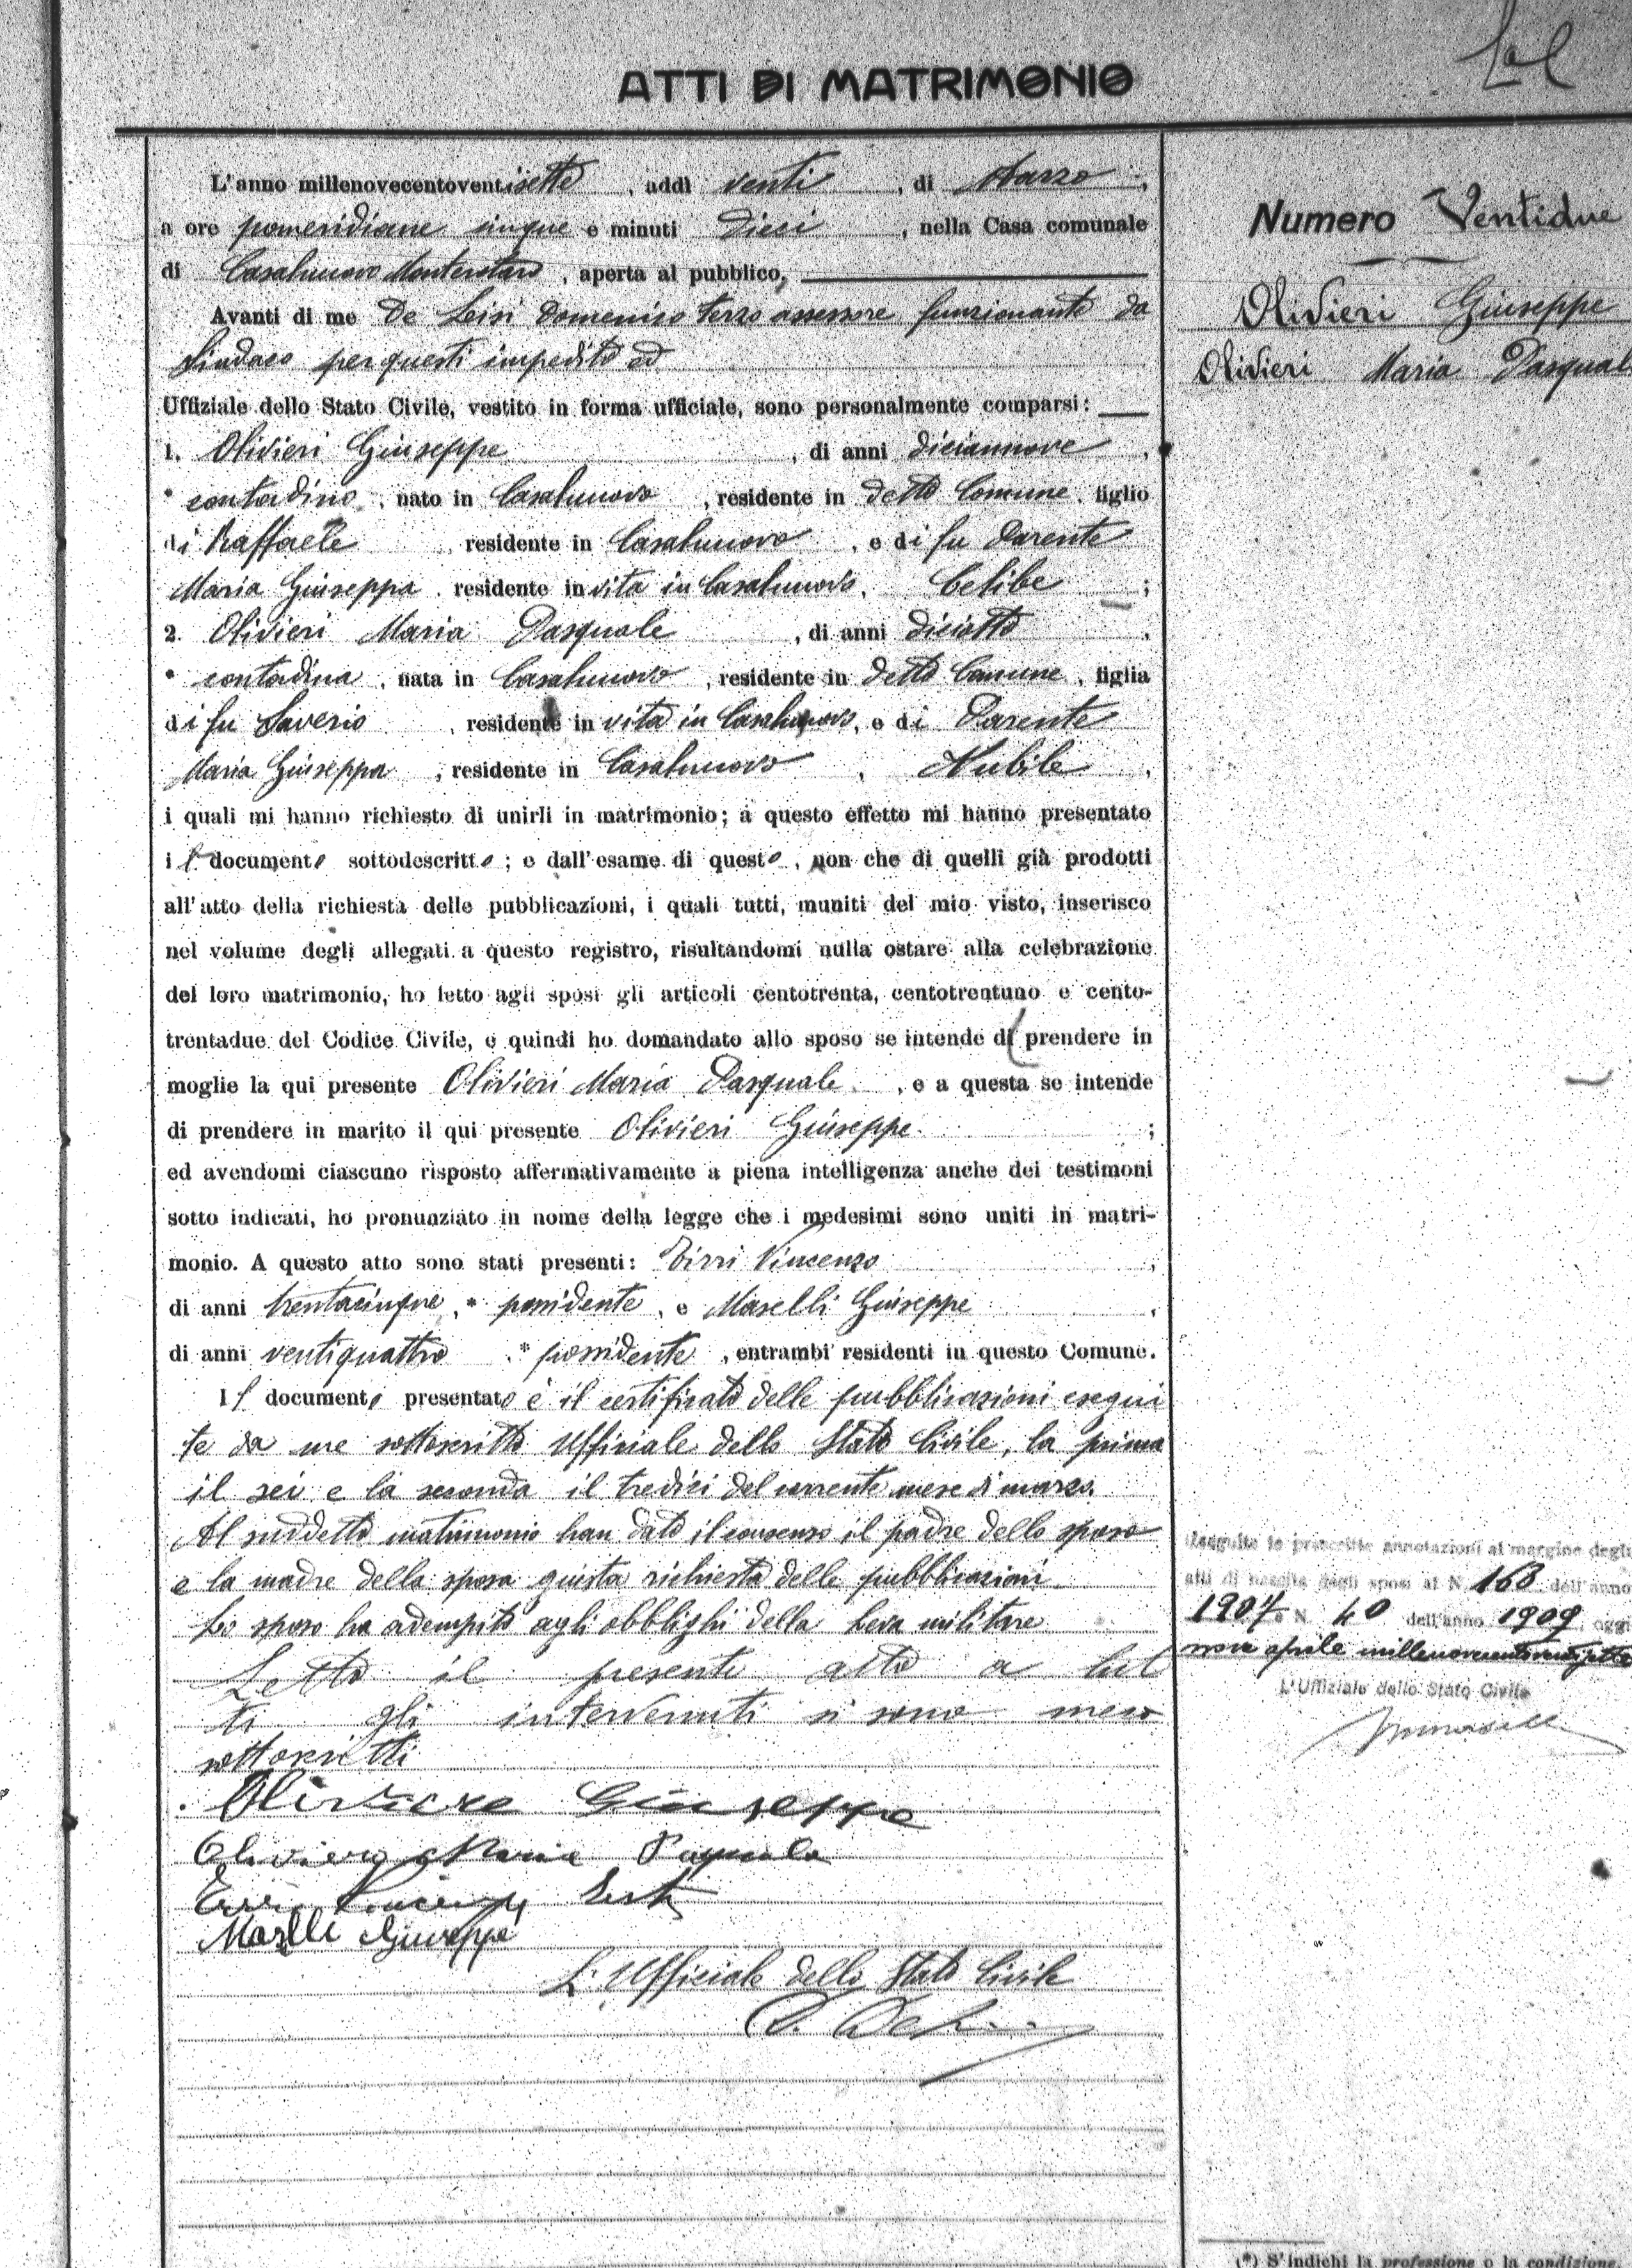 ATTI DI MATRIMONIO
L'anno millenovecentoventisette, addì venti, di Marzo,
a ore pomeridiane cinque e minuti dieci, nella Casa comunale
di Casalnuovo Monterotaro, aperta al pubblico,
Avanti di me De Lisi Domenico terzo assessore funzionante da
Sindaco per questi impedito ed
Uffiziale dello Stato Civile, vestito in forma ufficiale, sono personalmente comparsi:
1. Olivieri Giuseppe, di anni diciannove,
* contadino, nato in Casalnuovo, residente in detto Comune, figlio
di Raffaele, residente in Casalnuovo, e di fu Parente
Maria Giuseppa, residente in vita in Casalnuovo, Celibe;
2. Olivieri Maria Pasquale, di anni diciotto,
* contadina, nata in Casalnuovo, residente in detto Comune, figlia
di fu Saverio, residente in vita in Casalnuovo, e di Parente
Maria Giuseppa, residente in Casalnuovo, Nubile,
i quali mi hanno richiesto di unirli in matrimonio; a questo effetto mi hanno presentato
il documento sottodescritto; e dall'esame di questo, non che di quelli già prodotti
all'atto della richiesta delle pubblicazioni, i quali tutti, muniti del mio visto, inserisco
nel volume degli allegati a questo registro, risultandomi nulla ostare alla celebrazione
del loro matrimonio, ho letto agli sposi gli articoli centotrenta, centotrentuno e cento-
trentadue del Codice Civile, e quindi ho domandato allo sposo se intende di prendere in
moglie la qui presente Olivieri Maria Pasquale, e a questa se intende
di prendere in marito il qui presente Olivieri Giuseppe;
ed avendomi ciascuno risposto affermativamente a piena intelligenza anche dei testimoni
sotto indicati, ho pronunziato in nome della legge che i medesimi sono uniti in matri-
monio. A questo atto sono stati presenti: Vincenzo
di anni trentacinque, * possidente, e Maselli Giuseppe,
di anni ventiquattro, * possidente, entrambi residenti in questo Comune.
Il documento presentato è il certificato delle pubblicazioni esegui
te da me sottoscritto Uffiziale dello Stato Civile, la prima
il sei e la seconda il tredici del corrente mese di marzo.
Al suddetto matrimonio han dato il consenso il padre dello sposo
e la madre della sposa giusta richiesta delle pubblicazioni.
Lo sposo ha adempito agli obblighi della leva militare
Letto il presente atto a tut
ti gli intervenuti si sono meco
sottoscritti
Giuseppe
Maria
Giuseppe
L'Ufficiale dello Stato Civile
Numero Ventidue
Olivieri Giuseppe
Olivieri Maria Pasquale
Eseguite le prescritte annotazioni al margine degli
atti di nascita degli sposi al N. 168 dell'anno
1907 e N. 40 dell'anno 1909, oggi
nove aprile millenovecentoventisette
L'Uffiziale dello Stato Civile
(*) S'indichi la professione o la condizione.